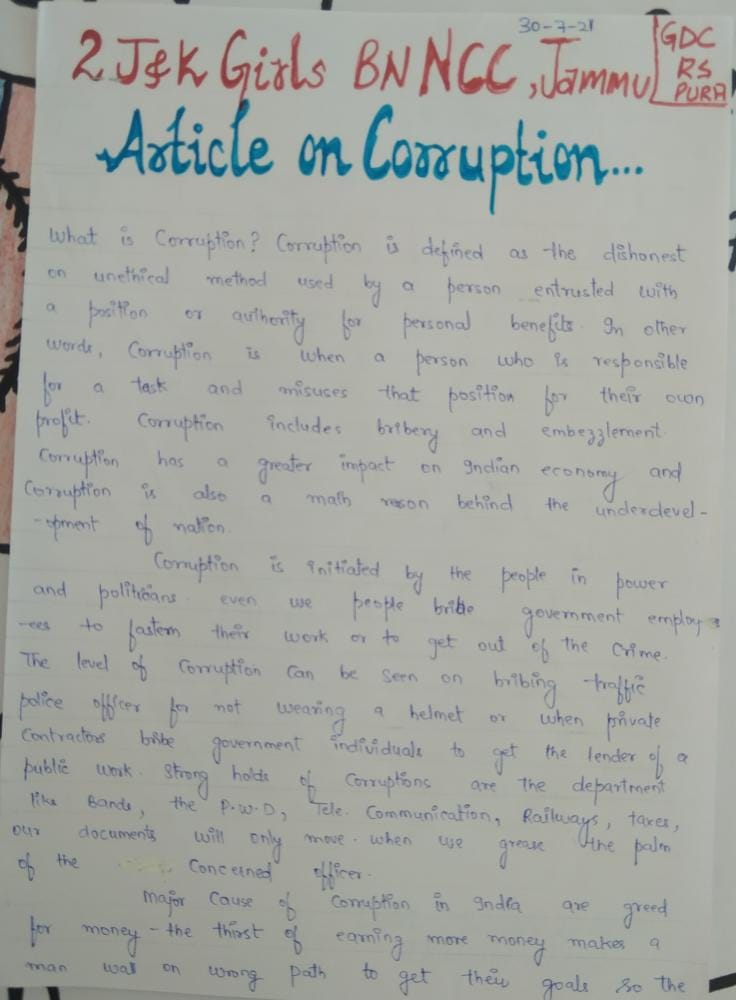 30-7-21
2 J&K Girls BN NCC, Jammu
GDC
RS
PURA
Article on Corruption...
What is Corruption? Corruption is defined as the dishonest
on unethical method used by a person entrusted with
a position or authority for personal benefits. In other
words, Corruption is when a person who is responsible
for a task and misuses that position for their own
profit. Corruption includes bribery and embezzlement.
Corruption has a greater impact on Indian economy and
Corruption is also a main reson behind the underdevel-
-opment of nation.
Corruption is initiated by the people in power
and politicians. even we people bribe government employ
-ees to fastern their work or to get out of the crime.
The level of Corruption can be seen on bribing traffic
police officer for not wearing a helmet or when private
Contractors bribe government individuals to get the lender of a
public work. Strong holds of Corruptions are the department
like Bands, the P.W.D, Tele. Communication, Railways, taxes,
our documents will only move. when we grease the palm
of the Concerned officer.
Major Cause of Corruption in India are greed
for money - the thirst of earning more money makes a
man wal on wrong path to get their goals so the